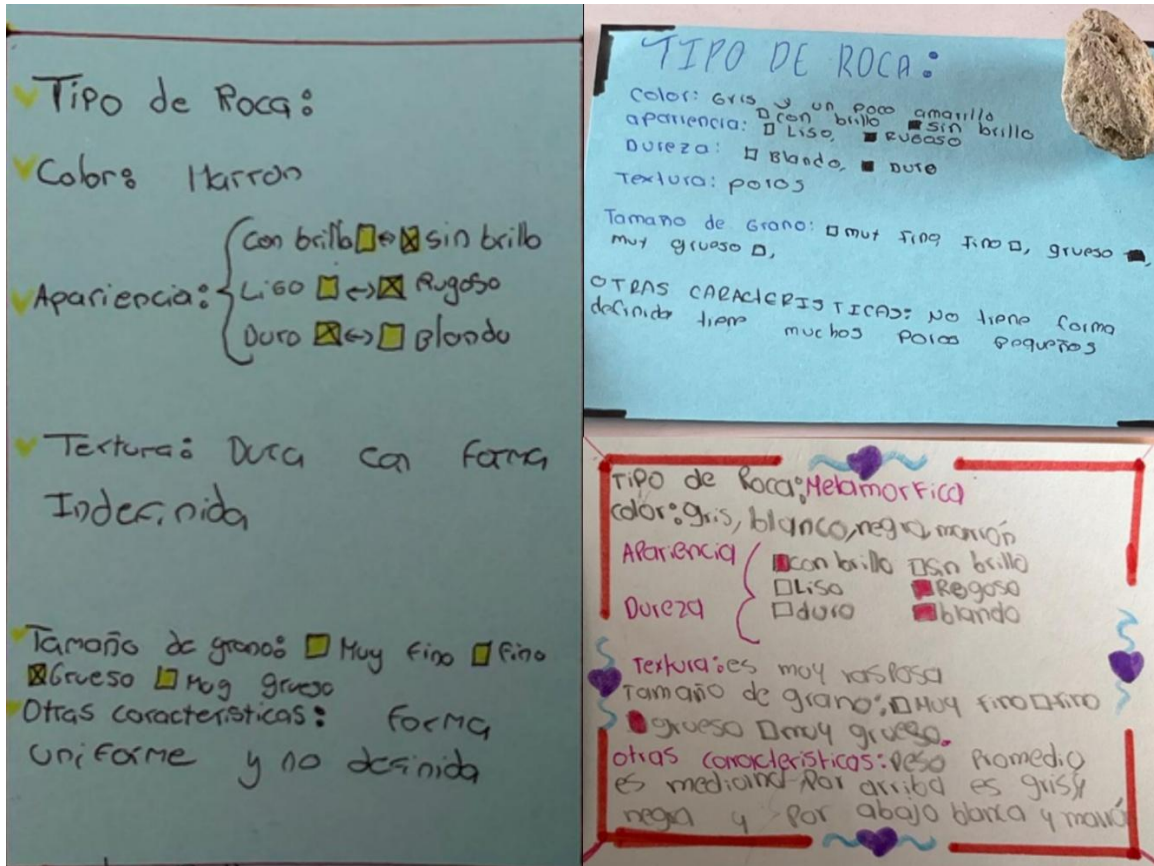 Tipo de Roca:
Color: Marron
Apariencia:
Con brillo sin brillo
Liso Rugoso
Duro Blando
Textura: Dura con forma
Indefinida
Tamaño de grano: Muy fino fino
Grueso Muy grueso
Otras caracteristicas: forma
uniforme y no definida
TIPO DE ROCA:
Color: Gris y un poco amarillo
apariencia: con brillo sin brillo
Liso, Rugoso
Dureza: Blando, Duro
Textura: poros
Tamaño de Grano: muy fino fino, grueso,
muy grueso,
OTRAS CARACTERISTICAS: No tiene forma
definida tiene muchos poros pequeños
Tipo de Roca: Metamorfica
color: gris, blanco, negra, marrón
Apariencia
con brillo sin brillo
Liso Rogoso
Dureza
duro blando
Textura: es muy rasposa
Tamaño de grano: Muy fino fino
grueso muy grueso.
otras características: peso promedio
es mediano Por arriba es gris y
negra y por abajo blanca y marrón